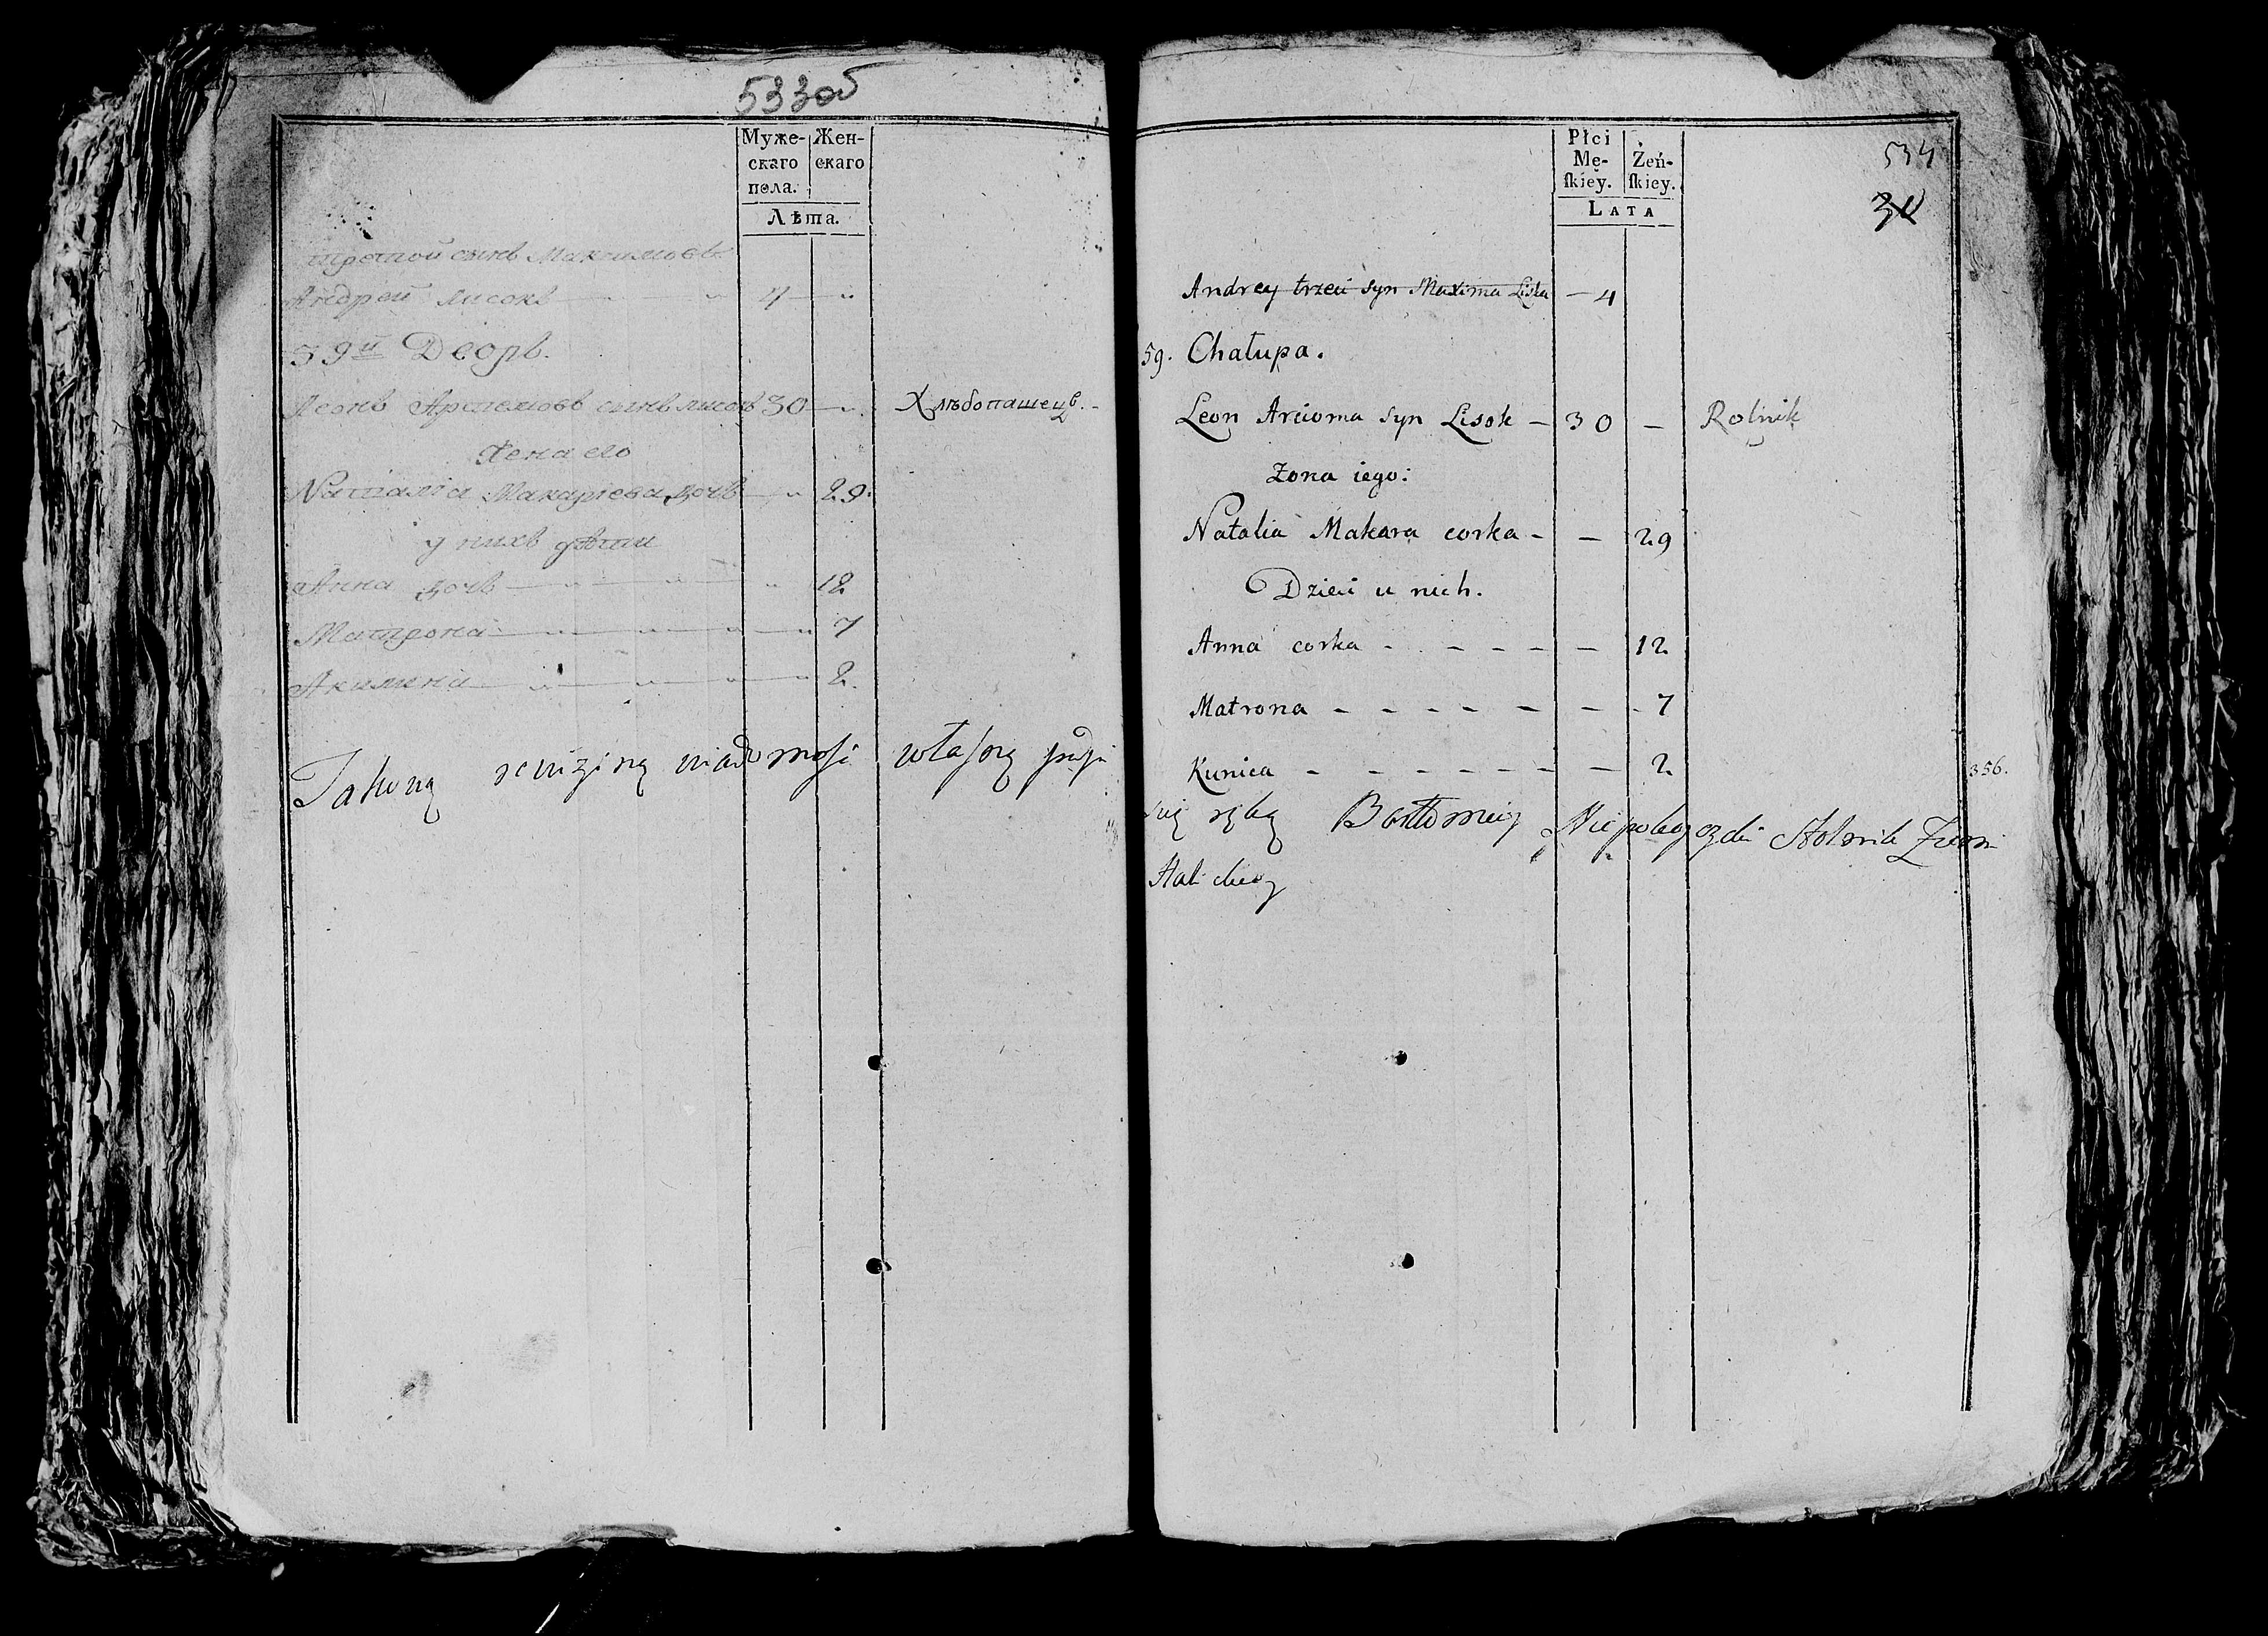 533об
Муже- Жен-
скаго скаго
пола.
Лѣта.
третой сынъ Максимовъ
Андрей лисокъ 4
59й Дворъ.
Леонъ Артемовъ сынъ лисокъ 30 Хлѣбопашецъ.
Жена его
Наталіа Макаріева дочь 29.
у нихъ дѣти
Анна дочь 12
Матрона 7
Акилина 2.
Takową rewizyiną wiadomość własną
Płci
Mę- Żeń-
skiey. skiey.
LATA
534
Andrey trzeci syn Maxima Liska - 4
59. Chałupa.
Leon Arcioma syn Lisok - 30 - Rolnik
Żona iego:
Natalia Makara corka - - 29
Dzieci u nich.
Anna corka - - - - - - 12
Matrona - - - - - - - 7
Kunica - - - - - - - 2. 356.
ręką Bartłomiey Stolnik